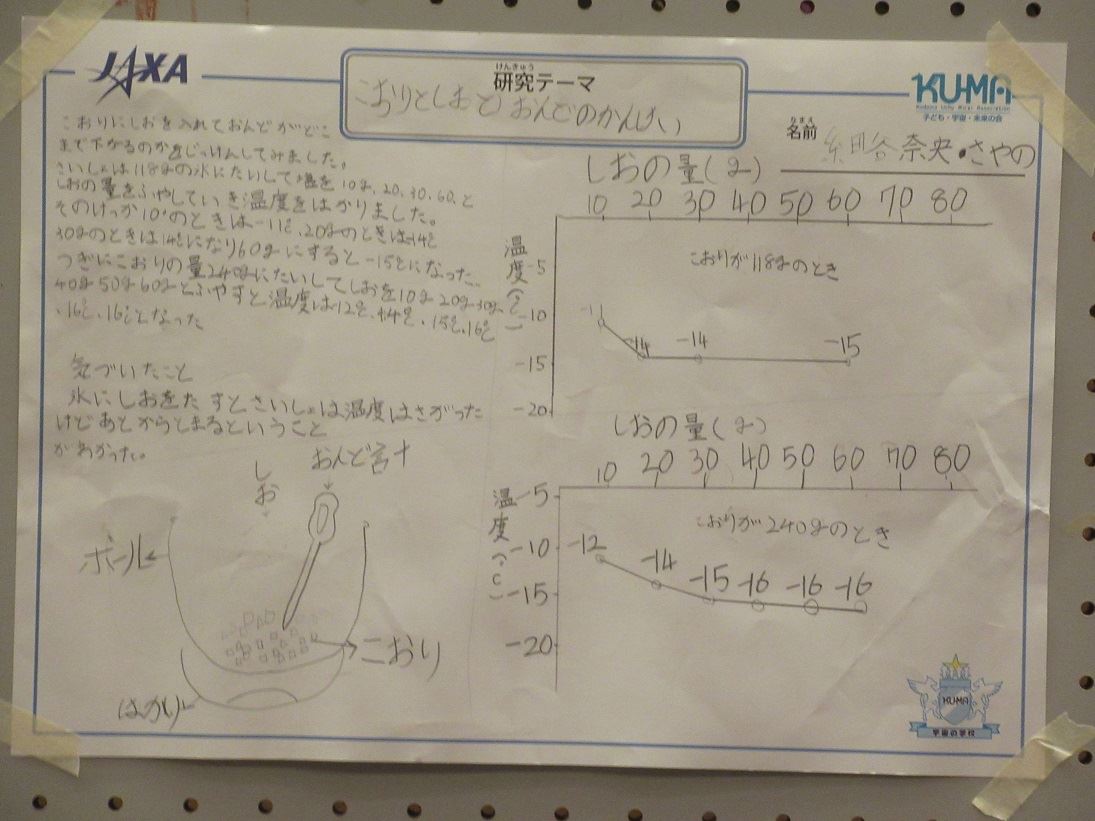 JAXA
けんきゅう
研究テーマ
こおりとしおとおんどのかんけい
KU-MA
子ども・宇宙・未来の会
なまえ
名前
奈央・さやの
こおりにしおを入れておんどがどこ
まで下がるのかをじっけんしてみました。
さいしょは118gの氷にたいして塩を10g、20、30、60、と
しおの量をふやしていき温度をはかりました。
そのけっか10gのときは-11℃、20gのときは-14℃
30gのときは14℃になり60gにすると-15℃になった。
つぎにこおりの量240gにたいしてしおを10g 20g 30g
40g 50g 60gとふやすと温度は12℃、14℃、15℃、16℃
、16℃、16℃となった
気づいたこと
氷にしおをたすとさいしょは温度はさがった
けどあとからとまるということ
がわかった。
しお
おんど計
ボール
こおり
はかり
しおの量(g)
10 20 30 40 50 60 70 80
温度(℃)
-5
-10
-15
-20
こおりが118gのとき
-11
-14
-14
-15
しおの量(g)
10 20 30 40 50 60 70 80
温度(℃)
-5
-10
-15
-20
こおりが240gのとき
-12
-14
-15
-16
-16
-16
KU-MA
宇宙の学校